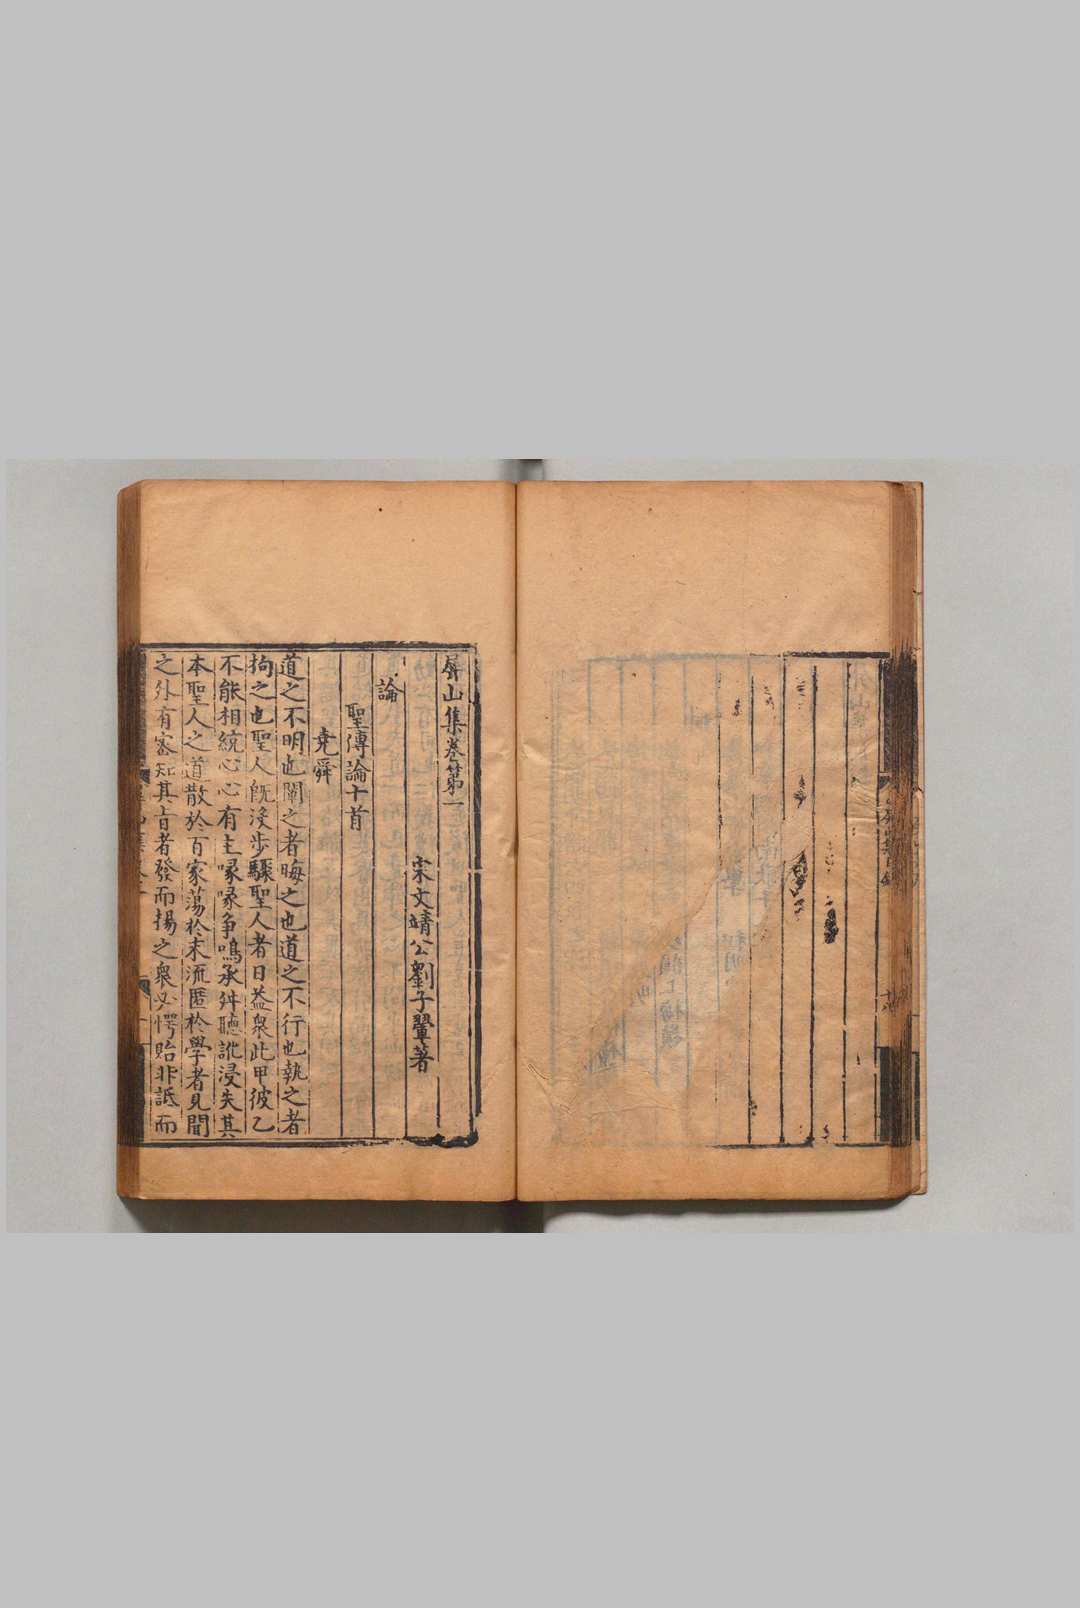 屏山集卷第一
宋文靖公劉子翬著
論
聖傳論十首
堯舜
道之不明也闡之者晦之也道之不行也執之者
拘之也聖人旣没步驟聖人者日益衆此甲彼乙
不能相統心心有主喙喙爭鳴承舛聽訛浸失其
本聖人之道散於百家蕩於末流匿於學者見聞
之外有審知其㫖者發而揚之衆必愕眙非詆而